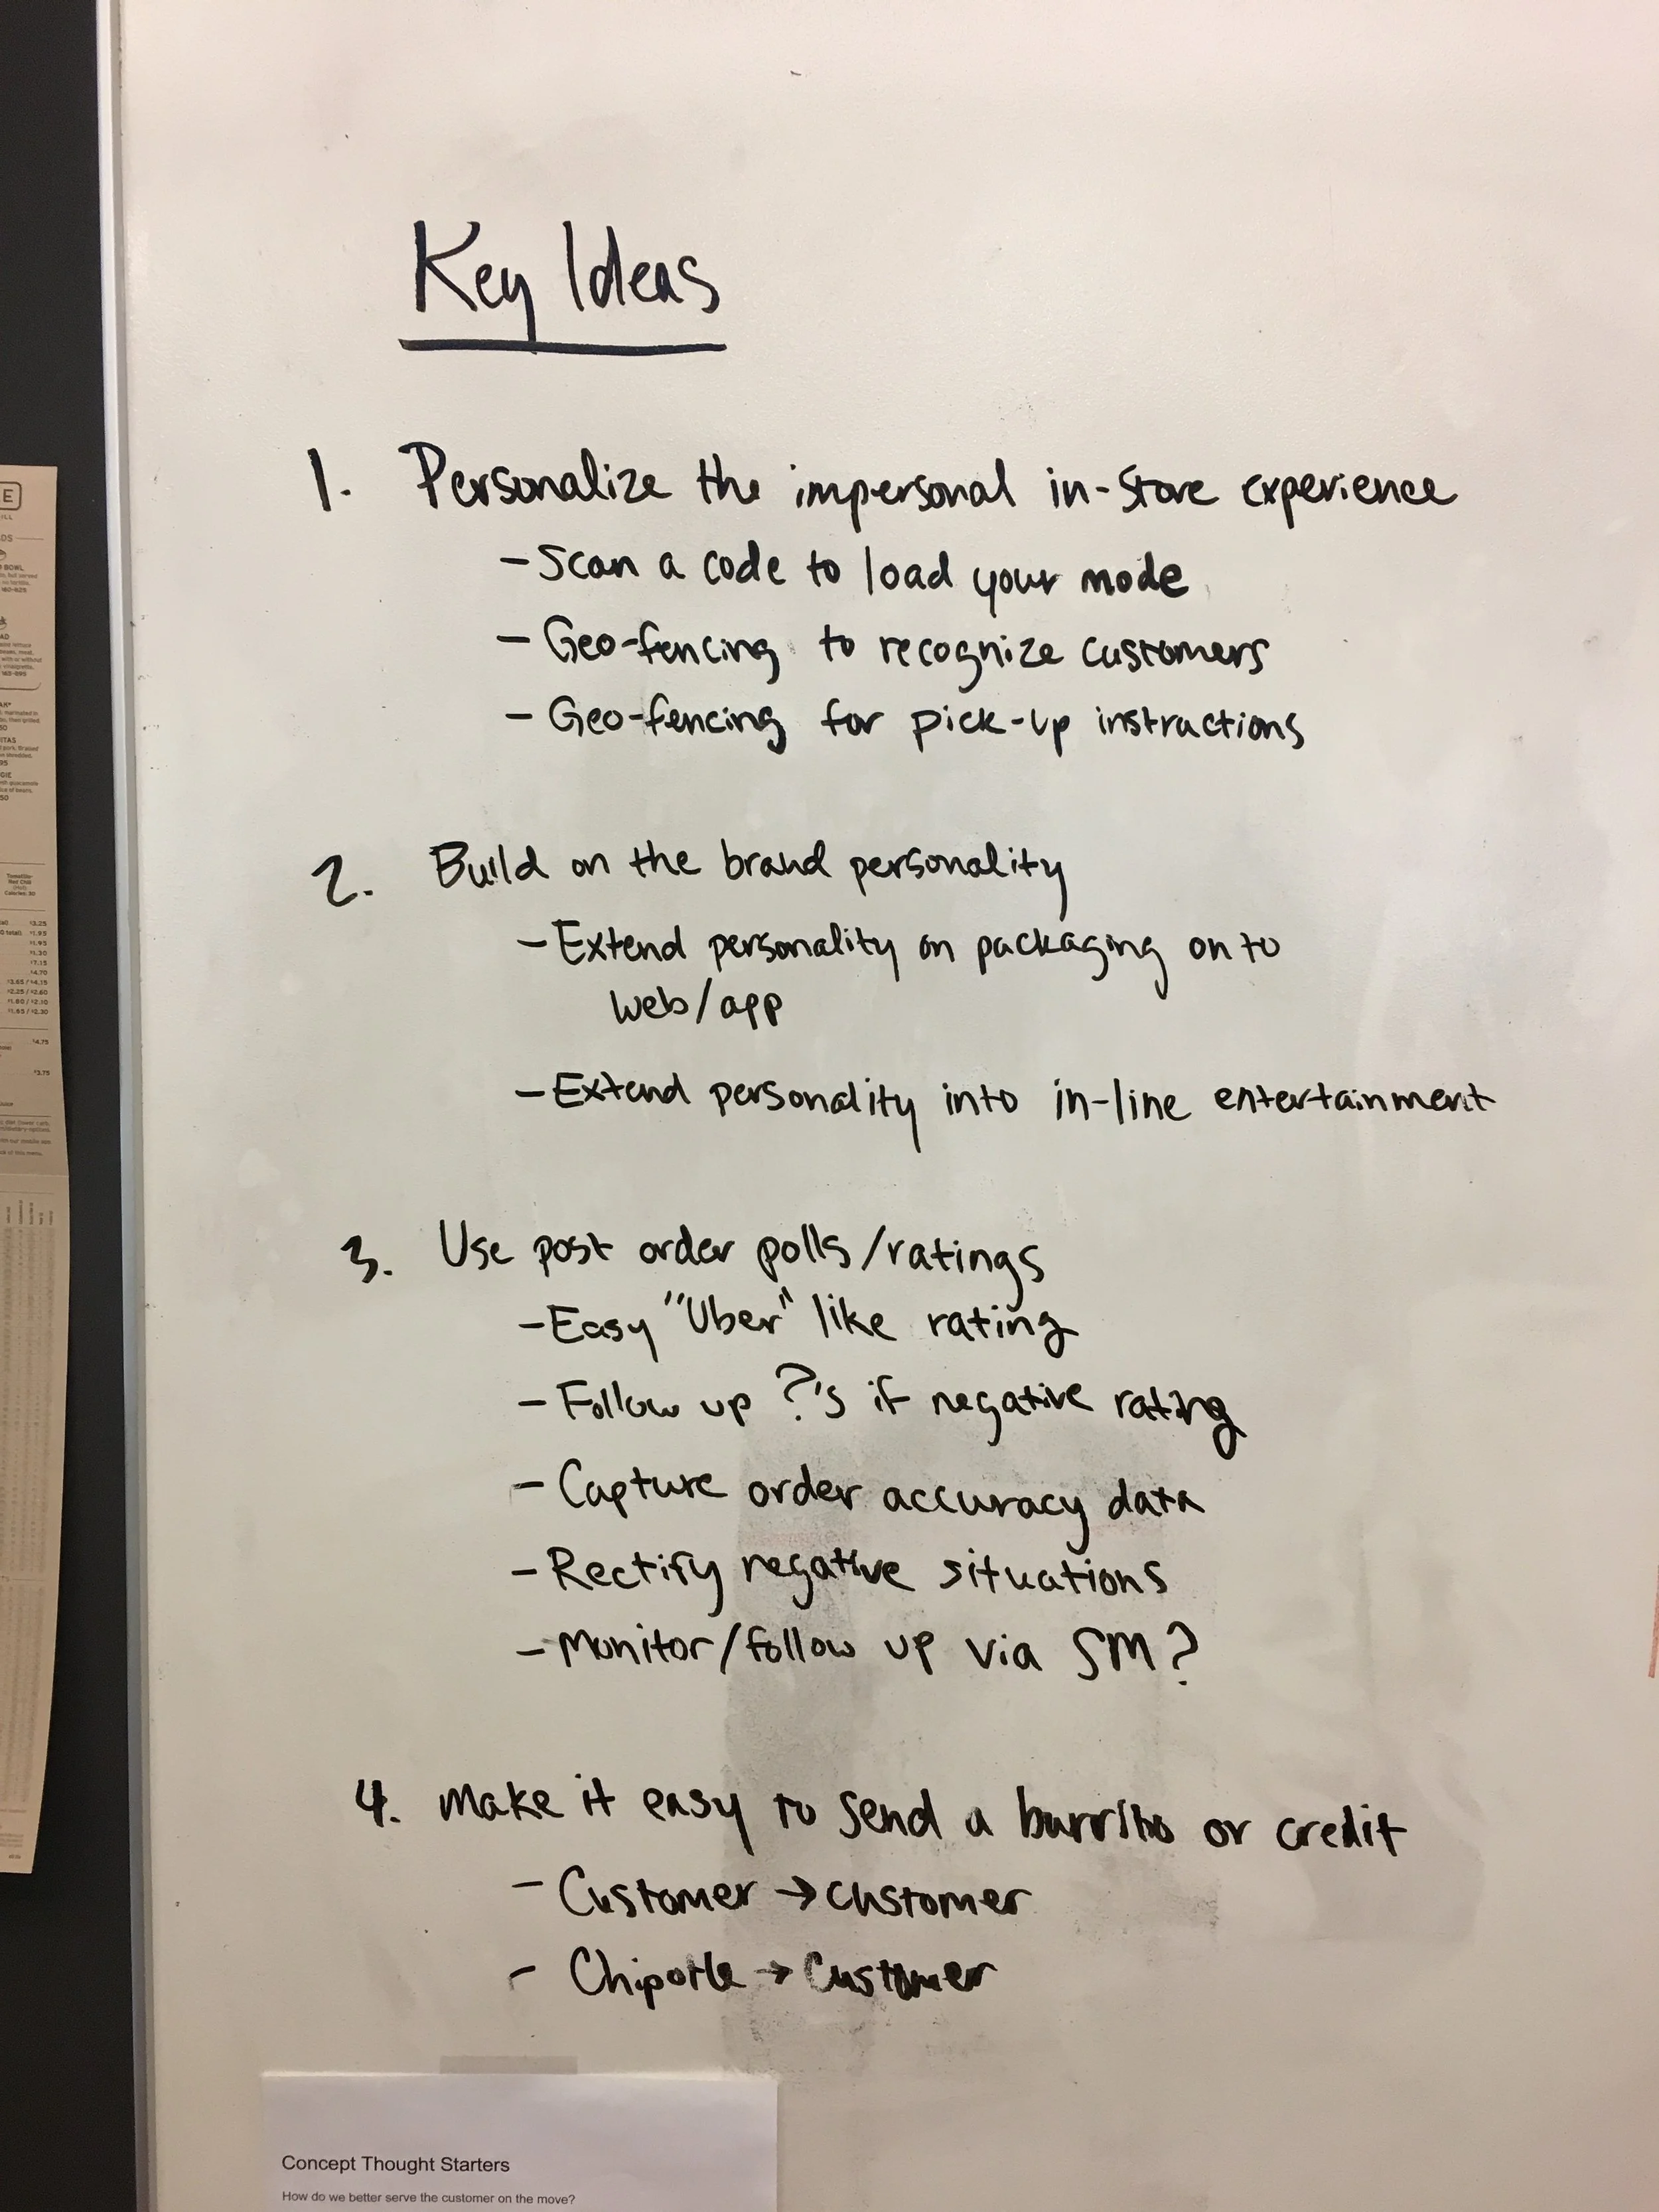 Key Ideas
1. Personalize the impersonal in-store experience
- Scan a code to load your mode
- Geo-fencing to recognize customers
- Geo-fencing for pick-up instructions
2. Build on the brand personality
- Extend personality on packaging on to
web/app
- Extend personality into in-line entertainment
3. Use post order polls/ratings
- Easy "Uber" like rating
- Follow up ?'s if negative rating
- Capture order accuracy data
- Rectify negative situations
- Monitor/follow up via SM?
4. Make it easy to send a burrito or credit
- Customer → customer
- Chipotle → Customer
Concept Thought Starters
How do we better serve the customer on the move?
E
BOWL
$3.25
$1.95
$4.75
$3.75